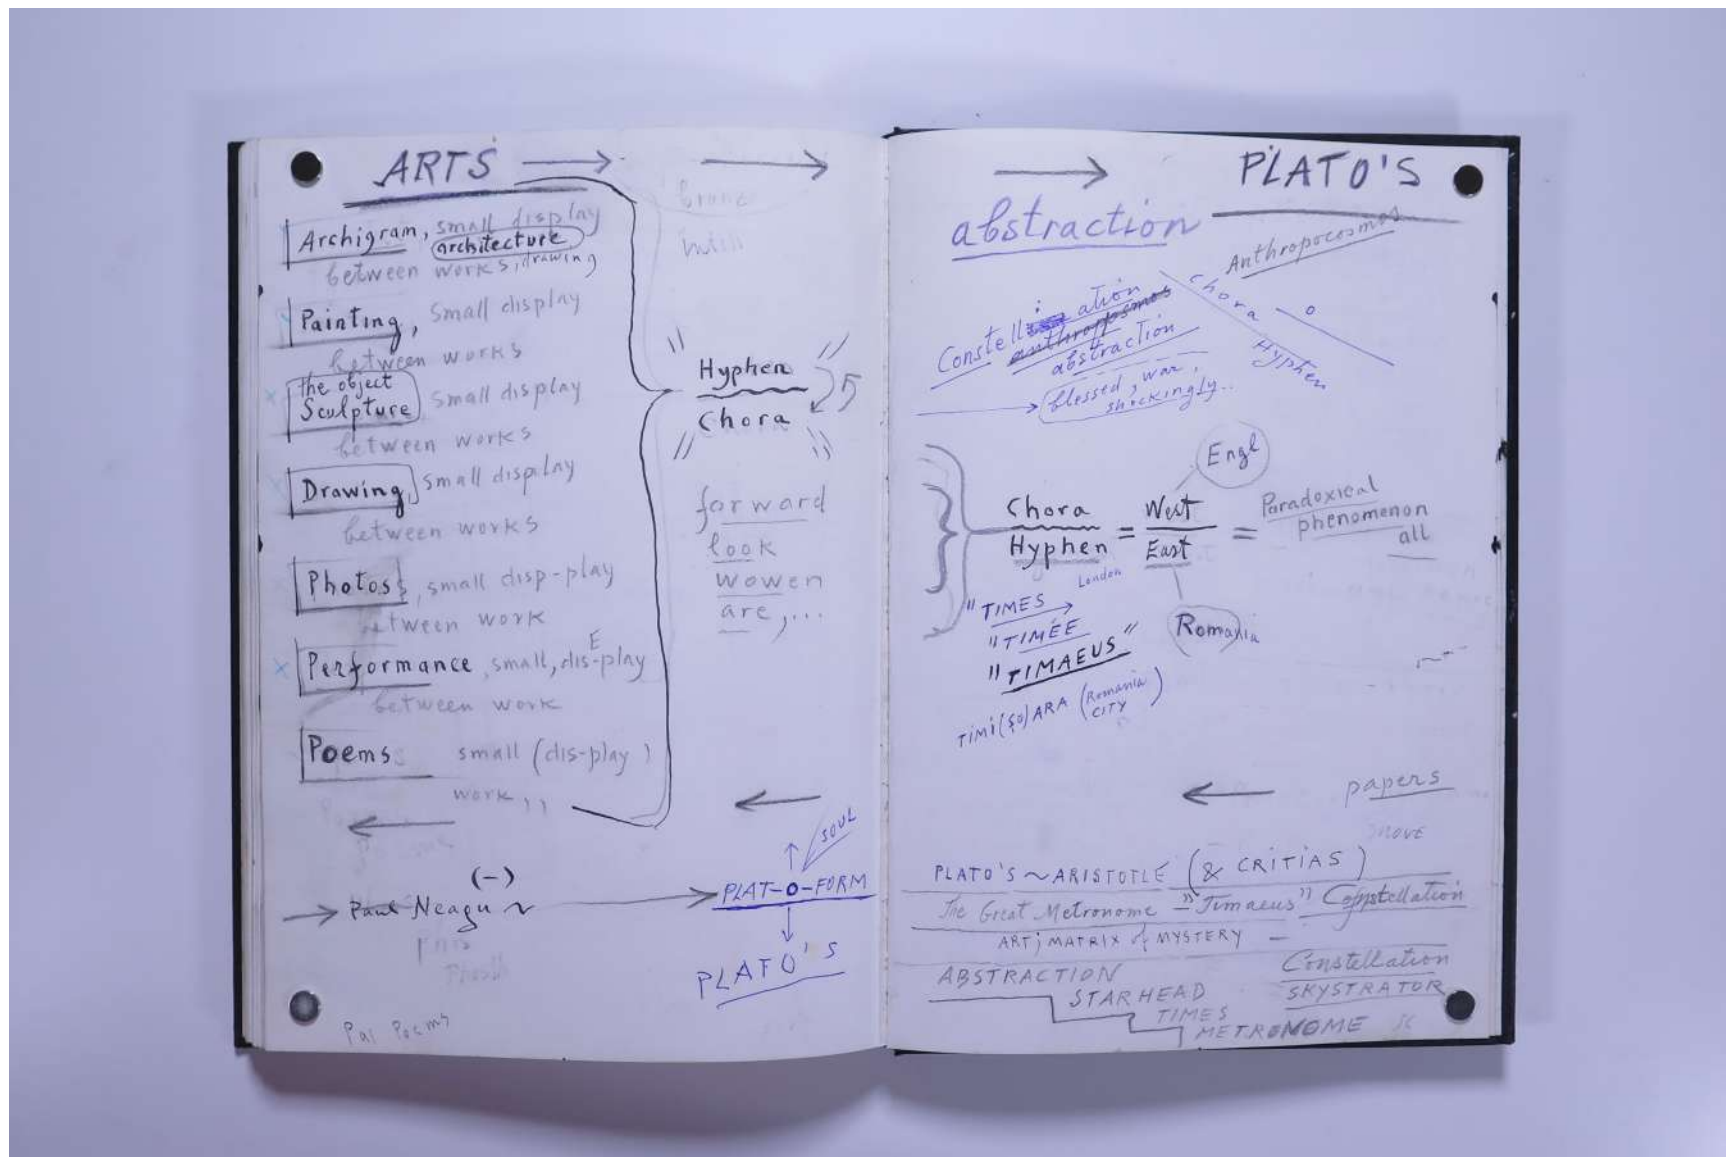 ARTS
Archigram, small display
architecture
between works, drawing
Painting, small display
between works
the object
Sculpture, small display
between works
Drawing, small display
between works
Photos, small disp-play
between work
Performance, small, dis-play
E
between work
Poems small (dis-play)
work,,
(-)
Paul Neagu
Pai Poems
Hyphen
Chora
forward
look
wowen
are,...
SOUL
PLAT-O-FORM
PLAFO'S
PLATO'S
abstraction
Anthropocosmos
Chora
Hyphen
Constellation
abstraction
blessed, war,
shockingly..
Engl
Chora = West = Paradoxical
Hyphen East phenomenon
all
London
Romania
"TIMES
"TIMÉE
"TIMAEUS"
TIMI(ȘO)ARA (Romania
CITY)
papers
PLATO'S ~ ARISTOTLE (& CRITIAS)
The Great Metronome - "Timaeus" Constellation
ART; MATRIX of MYSTERY -
ABSTRACTION
Constellation
STARHEAD
SKYSTRATOR
TIMES
METRONOME